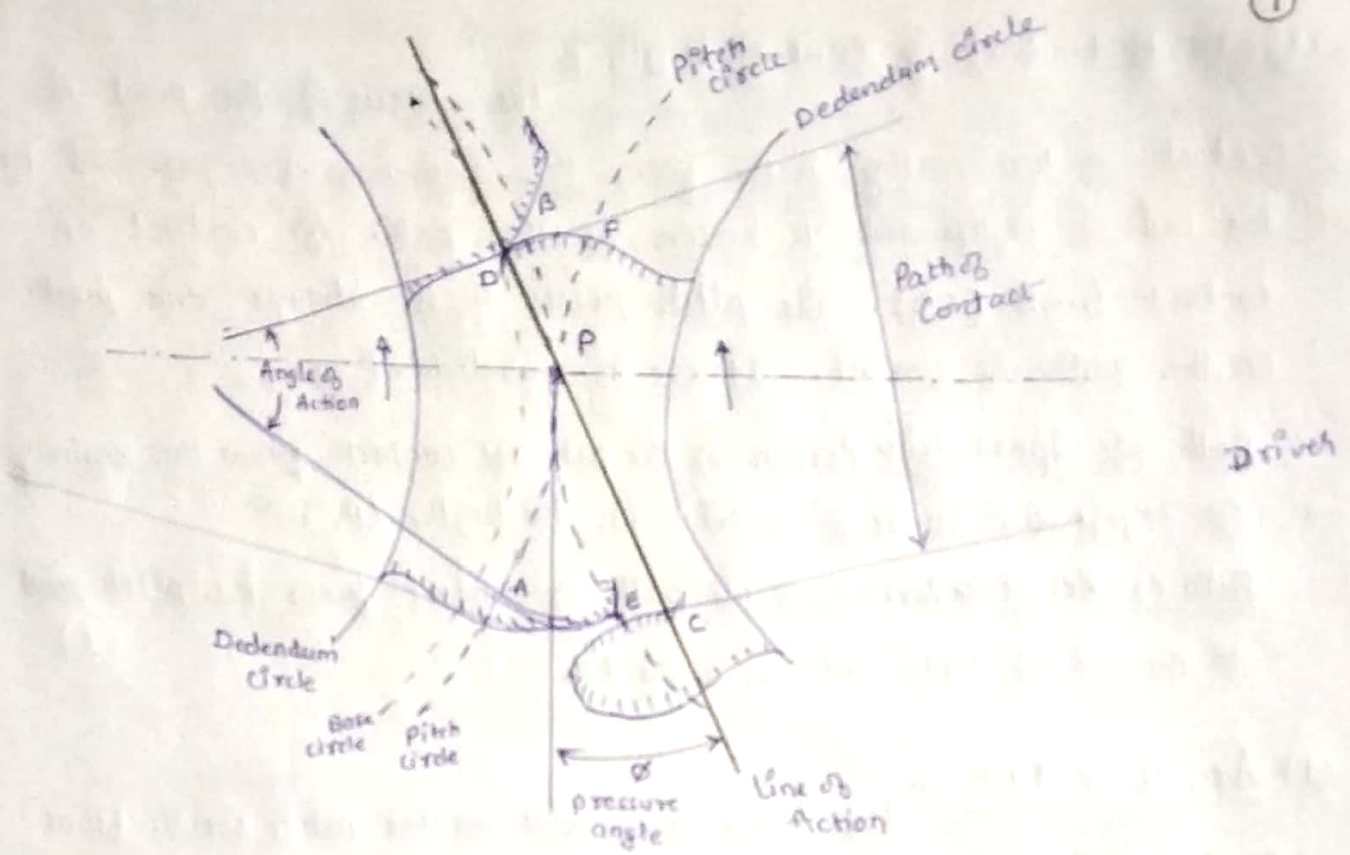 1
Pitch
circle
Dedendum circle
B
F
D
Path of
Contact
P
Angle of
Action
Driver
A
E
C
Dedendum
Circle
Base
circle
Pitch
circle
Ø
pressure
angle
Line of
Action